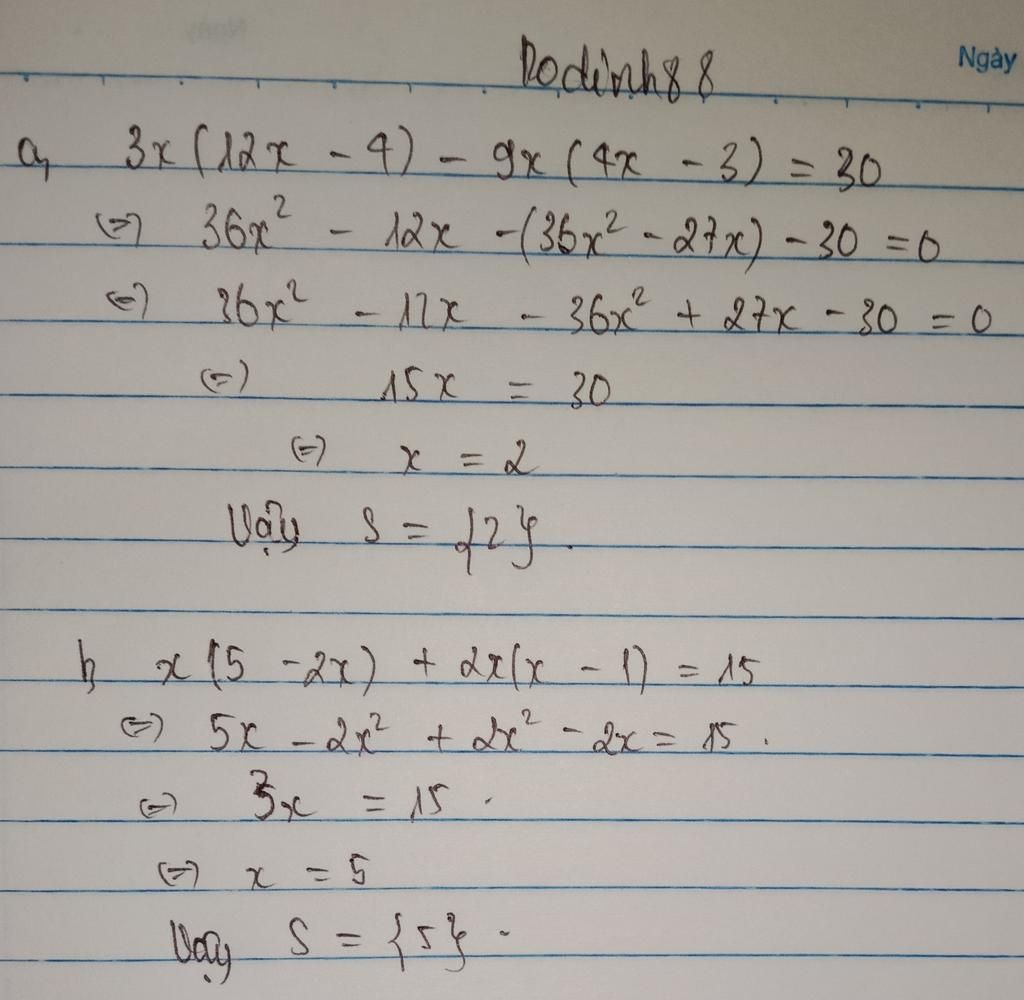 Dodinh88
Ngày
a, 3x(12x - 4) - 9x(4x - 3) = 30
(=) 36x² - 12x -(36x² - 27x) - 30 = 0
(=) 36x² - 12x - 36x² + 27x - 30 = 0
(=) 15x = 30
(=) x = 2
Vậy S = {2}.
b, x(5 - 2x) + 2x(x - 1) = 15
(=) 5x - 2x² + 2x² - 2x = 15.
(=) 3x = 15.
(=) x = 5
Vậy S = {5}.